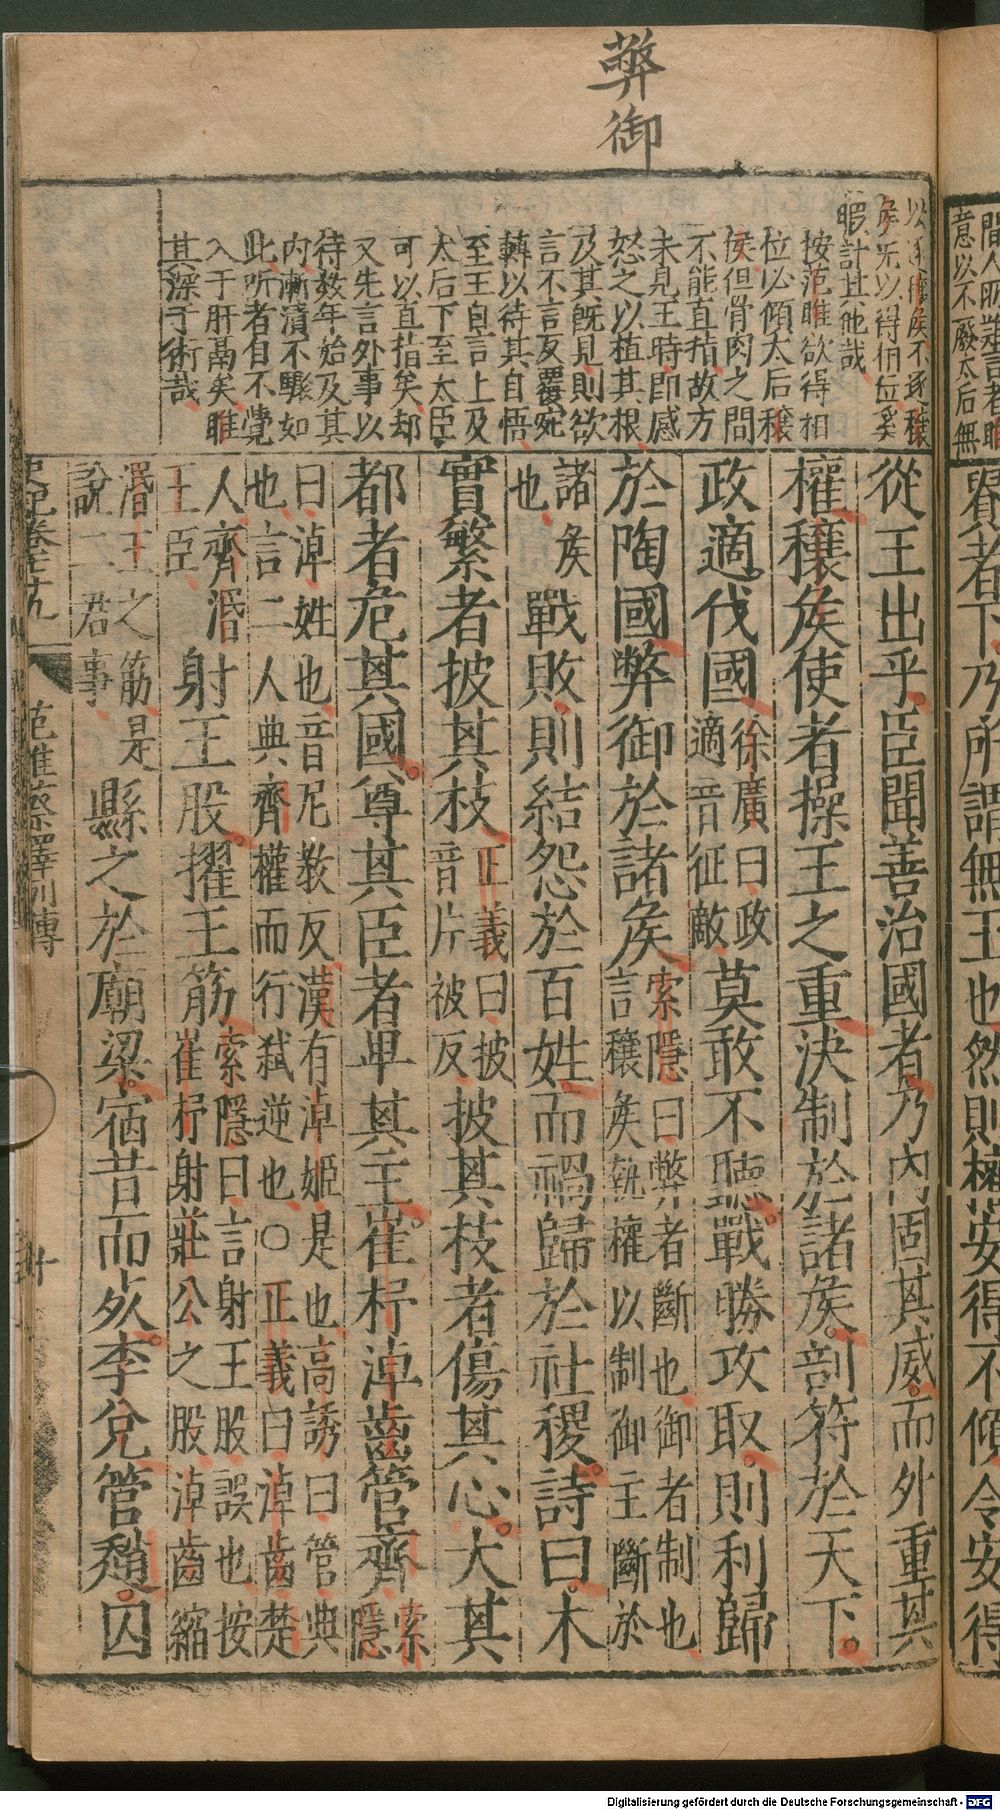 弊御
以逐穰侯不逐穰
侯旡以得相位奚
暇計其他哉
按范睢欲得相
位必傾太后穰
侯但骨肉之間
不能直指故方
未見王時即感
怒之以植其根
及其旣見則欲
言不言反覆宛
轉以待其自悟
至王自言上及
太后下至太臣
可以直指矣却
又先言外事以
待数年始及其
内漸漬不驟如
此所者自不覺
入于肝鬲矣睢
其深于術哉
從王出乎臣聞善治國者乃內固其威而外重其
權穰矦使者操王之重決制於諸矦剖符於天下
政適伐國徐廣曰政適音征敵莫敢不聽戰勝攻取則利歸
於陶國弊御於諸矦索隱曰弊者斷也御者制也言穰矦執權以制御主斷於
諸矦也戰敗則結怨於百姓而禍歸於社稷詩曰木
實繁者披其枝正義曰披音片被反披其枝者傷其心大其
都者危其國尊其臣者卑其主崔杼淖齒管齊索隱
曰淖姓也音尼教反漢有淖姬是也高誘曰管典
也言二人典齊權而行弑逆也○正義曰淖齒楚
人齊湣王臣射王股擢王筋索隱曰言射王股誤也按崔杼射莊公之股淖齒縮
湣王之筋是說二君事縣之於廟梁宿昔而死李兌管趙囚
史記卷七十九
范睢蔡澤列傳
十
間人昕
意以不廢太后無
賢者下乃所謂無王也然則權安得不傾令安得
Digitalisierung gefördert durch die Deutsche Forschungsgemeinschaft - DFG